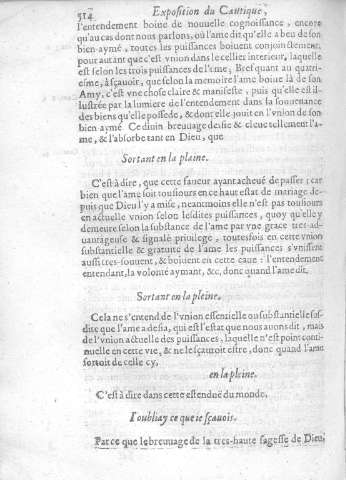 514 Exposition du Cantique,
l'entendement boiue de nouuelle cognoissance, encore
qu'au cas dont nous parlons, où l'ame dit qu'elle a beu de son
bien-aymé, toutes les puissances boiuent conjoinctement,
pour autant que c'est vnion dans le cellier interieur, laquelle
est selon les trois puissances de l'ame; Bref quant au quatri-
esme, à sçauoir, que selon la memoire l'ame boiue là de son
Amy, c'est vne chose claire & manifeste, puis qu'elle est il-
lustrée par la lumiere de l'entendement dans la souuenance
des biens qu'elle possede, & dont elle jouit en l'vnion de son
bien-aymé Ce diuin breuuage deifie & esleue tellement l'a-
me, & l'absorbe tant en Dieu, que
Sortant en la plaine.
C'est à dire, que cette faueur ayant acheué de passer; car
bien que l'ame soit tousiours en ce haut estat de mariage de-
puis que Dieu l'y a mise, neantmoins elle n'est pas tousiours
en actuelle vnion selon lesdites puissances, quoy qu'elle y
demeure selon la substance de l'ame par vne grace tres-ad-
uantageuse & signalé priuilege, toutesfois en cette vnion
substantielle & gratuite de l'ame les puissances s'vnissent
aussi tres-souuent, & boiuent en cette caue: l'entendement
entendant, la volonté aymant, &c, donc quand l'ame dit,
Sortant en la pleine.
Cela ne s'entend de l'vnion essentielle ou substantielle sus-
dite que l'ame a desia, qui est l'estat que nous auons dit, mais
de l'vnion actuelle des puissances, laquelle n'est point conti-
nuelle en cette vie, & ne le sçauroit estre, donc quand l'ame
sortoit de celle cy,
en la pleine.
C'est à dire dans cette estenduë du monde,
I'oubliay ce que ie sçauois.
Parce que le breuuage de la tres-haute sagesse de Dieu,